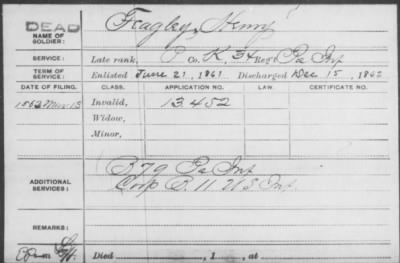 DEAD
NAME OF SOLDIER: Feagley, Henry
SERVICE: Late rank, P Co. K, 34 Reg't Pa Inf
TERM OF SERVICE: Enlisted June 21, 1861 Discharged Dec. 15, 1862
DATE OF FILING. CLASS. APPLICATION NO. LAW. CERTIFICATE NO.
1863 Mar 13 Invalid, 13452
Widow,
Minor,
ADDITIONAL SERVICES: Pa Inf
Corp B. 11 U S Inf
REMARKS:
Died , 1 , at